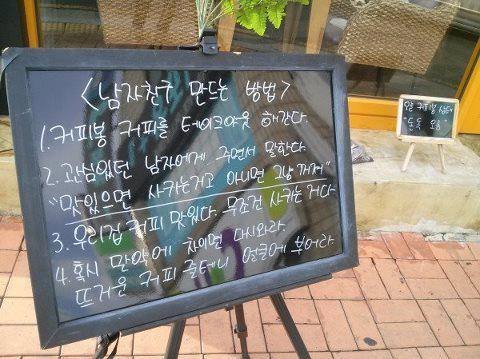 <남자친구 만드는 방법>
1. 커피봉 커피를 테이크아웃 해간다.
2. 관심있던 남자에게 주면서 말한다.
"맛있으면 사귀는거고 아니면 그냥 꺼져"
3. 우리집 커피 맛있다. 무조건 사귀는 거다.
4. 혹시 만약에 차이면 다시와라.
뜨거운 커피 줄테니 얼굴에 부어라.
커피봉